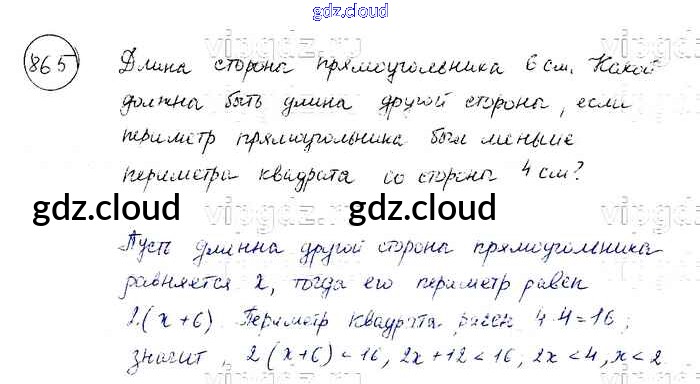 gdz.cloud
865
Длина стороны прямоугольника 6 см. Какой
должна быть длина другой стороны, если
периметр прямоугольника был меньше
периметра квадрата со стороны 4 см?
gdz.cloud gdz.cloud
Пусть длинна другой стороны прямоугольника
равняется x, тогда его периметр равен
2(x+6) Периметр квадрата равен 4·4=16;
значит, 2(x+6)<16, 2x+12<16, 2x<4, x<2